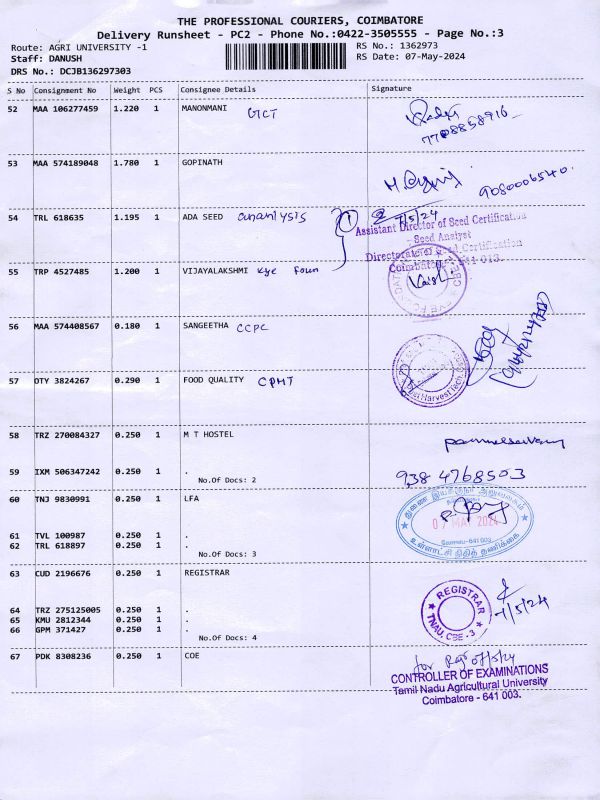 THE PROFESSIONAL COURIERS, COIMBATORE
Delivery Runsheet - PC2 - Phone No.:0422-3505555 - Page No.:3
Route: AGRI UNIVERSITY -1
RS No.: 1362973
Staff: DANUSH
RS Date: 07-May-2024
DRS No.: DCJB136297303
S No Consignment No Weight PCS Consignee Details Signature
52 MAA 106277459 1.220 1 MANONMANI GCT
7708858916
53 MAA 574189048 1.780 1 GOPINATH
9080006540
54 TRL 618635 1.195 1 ADA SEED ananlysis
7/5/24
Assistant Director of Seed Certification
Seed Analyst
Directorate of Seed Certification
Coimbatore - 641 013.
55 TRP 4527485 1.200 1 VIJAYALAKSHMI kye foun
56 MAA 574408567 0.180 1 SANGEETHA CCPC
57 OTY 3824267 0.290 1 FOOD QUALITY CPHT
58 TRZ 270084327 0.250 1 M T HOSTEL
59 IXM 506347242 0.250 1 .
938 4768503
No.Of Docs: 2
60 TNJ 9830991 0.250 1 LFA
துணை இயக்குநர் அலுவலகம்
07 MAY 2024
கோவை-641 003
உள்ளாட்சி நிதித் தணிக்கை
61 TVL 100987 0.250 1 .
62 TRL 618897 0.250 1 .
No.Of Docs: 3
63 CUD 2196676 0.250 1 REGISTRAR
REGISTRAR
TNAU, CBE - 3
7/5/24
64 TRZ 275125005 0.250 1 .
65 KMU 2812344 0.250 1 .
66 GPM 371427 0.250 1 .
No.Of Docs: 4
67 PDK 8308236 0.250 1 COE
for
CONTROLLER OF EXAMINATIONS
Tamil Nadu Agricultural University
Coimbatore - 641 003.